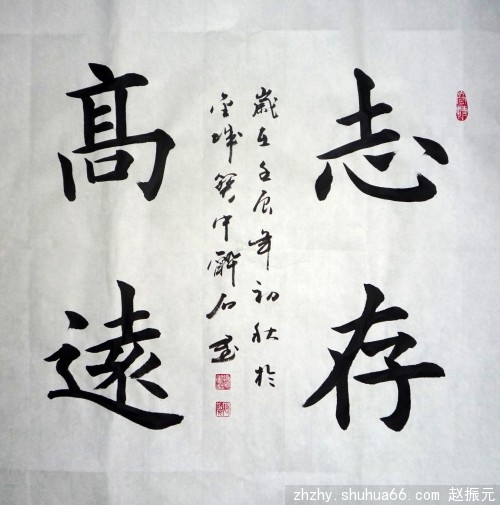 志存
高遠
歲在壬辰年初秋於
金城
中
石
zhzhy.shuhua66.com 赵振元